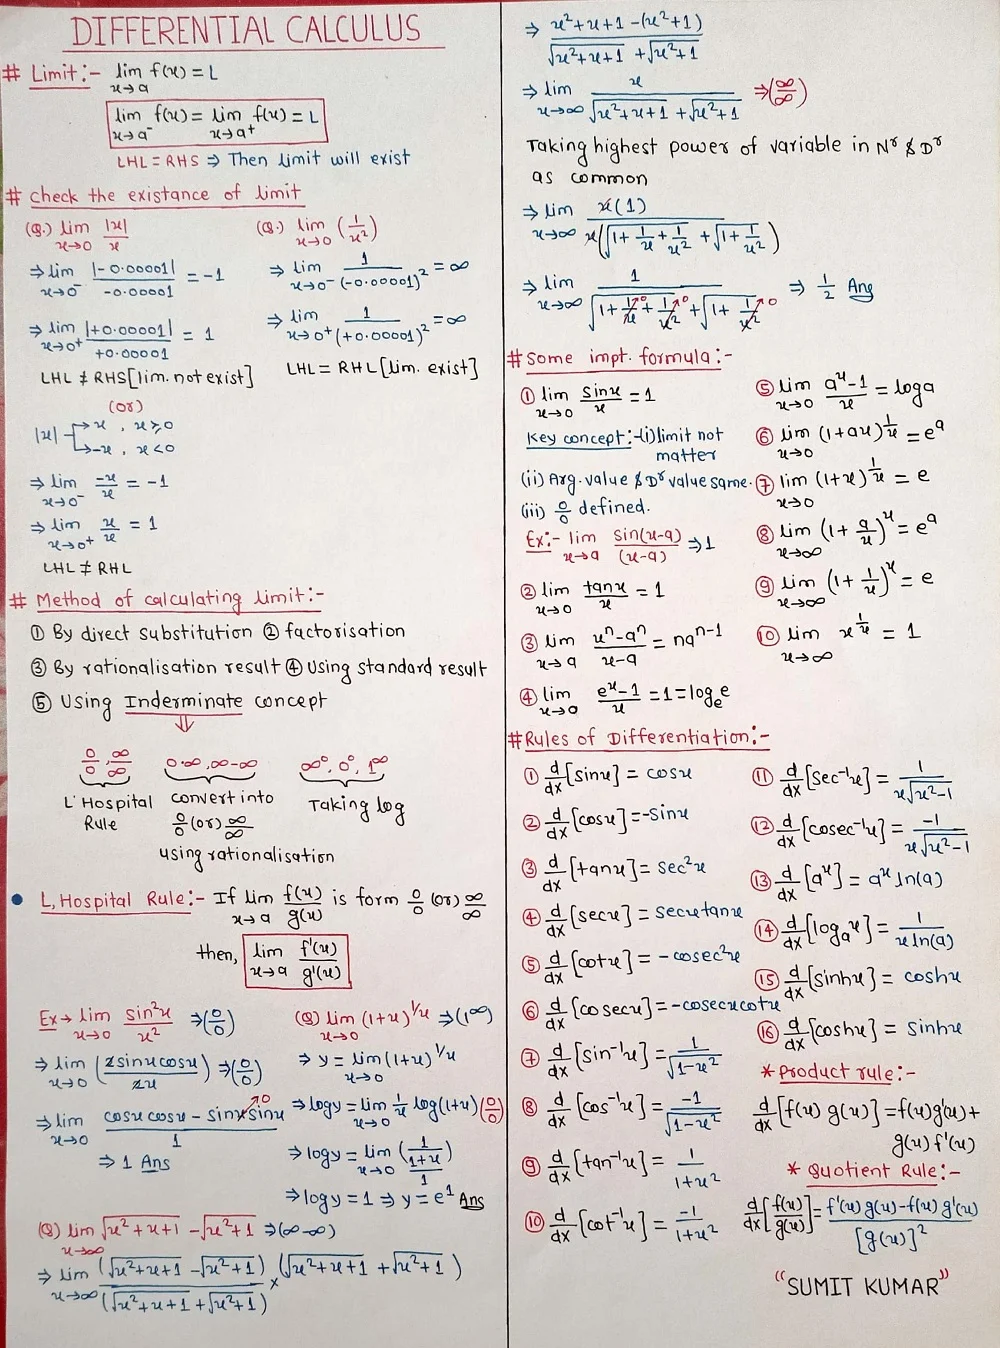 DIFFERENTIAL CALCULUS
# Limit:- lim x→a f(x) = L
lim x→a⁻ f(x) = lim x→a⁺ f(x) = L
LHL = RHS ⇒ Then limit will exist
# Check the existance of limit
(Q.) lim x→0 |x|/x
⇒ lim x→0⁻ |-0.00001|/-0.00001 = -1
⇒ lim x→0⁺ |+0.00001|/+0.00001 = 1
LHL ≠ RHS [lim. not exist]
(or)
|x| → x , x ≥ 0
→ -x , x < 0
⇒ lim x→0⁻ -x/x = -1
⇒ lim x→0⁺ x/x = 1
LHL ≠ RHL
(Q.) lim x→0 (1/x²)
⇒ lim x→0⁻ 1/(-0.00001)² = ∞
⇒ lim x→0⁺ 1/(+0.00001)² = ∞
LHL = RHL [lim. exist]
# Method of calculating limit:-
① By direct substitution ② factorisation
③ By rationalisation result ④ Using standard result
⑤ Using Inderminate concept
⇓
0/0, ∞/∞ 0·∞, ∞-∞ ∞⁰, 0⁰, 1^∞
L' Hospital Rule
convert into 0/0 (or) ∞/∞
using rationalisation
Taking log
• L, Hospital Rule:- If lim x→a f(x)/g(x) is form 0/0 (or) ∞/∞
then, lim x→a f'(x)/g'(x)
Ex → lim x→0 sin²x/x² ⇒ (0/0)
⇒ lim x→0 (2sinxcosx/2x) ⇒ (0/0)
⇒ lim x→0 (cosx cosx - sinx sinx)/1 →0
⇒ 1 Ans
(Q) lim x→0 (1+x)^1/x ⇒ (1^∞)
⇒ y = lim x→0 (1+x)^1/x
⇒ logy = lim x→0 1/x log(1+x) (0/0)
⇒ logy = lim x→0 (1/(1+x))/1
⇒ logy = 1 ⇒ y = e¹ Ans
(Q) lim x→∞ √x²+x+1 - √x²+1 ⇒ (∞-∞)
⇒ lim x→∞ (√x²+x+1 - √x²+1)/(√x²+x+1 + √x²+1) × (√x²+x+1 + √x²+1)
⇒ x²+x+1-(x²+1)/√x²+x+1 + √x²+1
⇒ lim x→∞ x/√x²+x+1 + √x²+1 ⇒ (∞/∞)
Taking highest power of variable in Nʳ & Dʳ
as common
⇒ lim x→∞ x(1)/x(√1+1/x+1/x² + √1+1/x²)
⇒ lim x→∞ 1/√1+1/x→0+1/x²→0 + √1+1/x²→0 ⇒ 1/2 Ans
# Some impt. formula:-
① lim x→0 sinx/x = 1
Key concept:-(i) limit not
matter
(ii) Arg. value & Dʳ value same.
(iii) 0/0 defined.
Ex:- lim x→a sin(x-a)/(x-a) ⇒ 1
② lim x→0 tanx/x = 1
③ lim x→a xⁿ-aⁿ/x-a = naⁿ⁻¹
④ lim x→0 eˣ-1/x = 1 = logₑe
⑤ lim x→0 aˣ-1/x = loga
⑥ lim x→0 (1+ax)^1/x = eᵃ
⑦ lim x→0 (1+x)^1/x = e
⑧ lim x→∞ (1+a/x)ˣ = eᵃ
⑨ lim x→∞ (1+1/x)ˣ = e
⑩ lim x→∞ x^1/x = 1
# Rules of Differentiation:-
① d/dx [sinx] = cosx
② d/dx [cosx] = -sinx
③ d/dx [tanx] = sec²x
④ d/dx [secx] = secxtanx
⑤ d/dx [cotx] = -cosec²x
⑥ d/dx [cosecx] = -cosecxcotx
⑦ d/dx [sin⁻¹x] = 1/√1-x²
⑧ d/dx [cos⁻¹x] = -1/√1-x²
⑨ d/dx [tan⁻¹x] = 1/1+x²
⑩ d/dx [cot⁻¹x] = -1/1+x²
⑪ d/dx [sec⁻¹x] = 1/x√x²-1
⑫ d/dx [cosec⁻¹x] = -1/x√x²-1
⑬ d/dx [aˣ] = aˣ ln(a)
⑭ d/dx [logₐx] = 1/x ln(a)
⑮ d/dx [sinhx] = coshx
⑯ d/dx [coshx] = sinhx
* Product rule:-
d/dx [f(x) g(x)] = f(x)g'(x)+
g(x) f'(x)
* Quotient Rule:-
d/dx [f(x)/g(x)] = f'(x) g(x) - f(x) g'(x)/[g(x)]²
"SUMIT KUMAR"